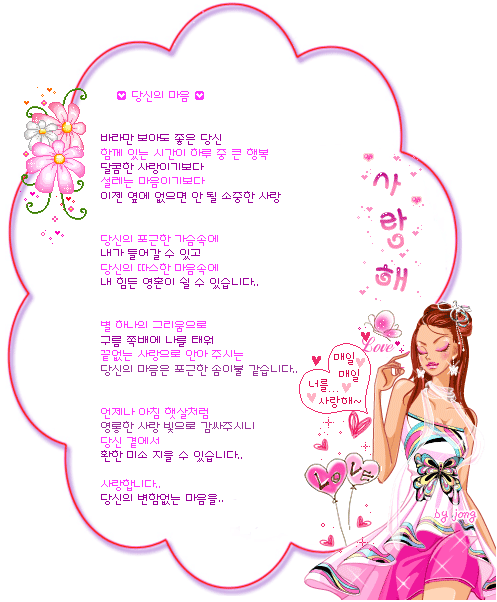 당신의 마음
바라만 보아도 좋은 당신
함께 있는 시간이 하루 중 큰 행복
달콤한 사랑이기보다
설레는 마음이기보다
이젠 옆에 없으면 안 될 소중한 사랑
당신의 포근한 가슴속에
내가 들어갈 수 있고
당신의 따스한 마음속에
내 힘든 영혼이 쉴 수 있습니다..
별 하나의 그리움으로
구름 쪽배에 나를 태워
끝없는 사랑으로 안아 주시는
당신의 마음은 포근한 솜이불 같습니다..
언제나 아침 햇살처럼
영롱한 사랑 빛으로 감싸주시니
당신 곁에서
환한 미소 지을 수 있습니다..
사랑합니다..
당신의 변함없는 마음을..
사랑해
Love
매일
매일
너를...
사랑해~
LOVE
by jong